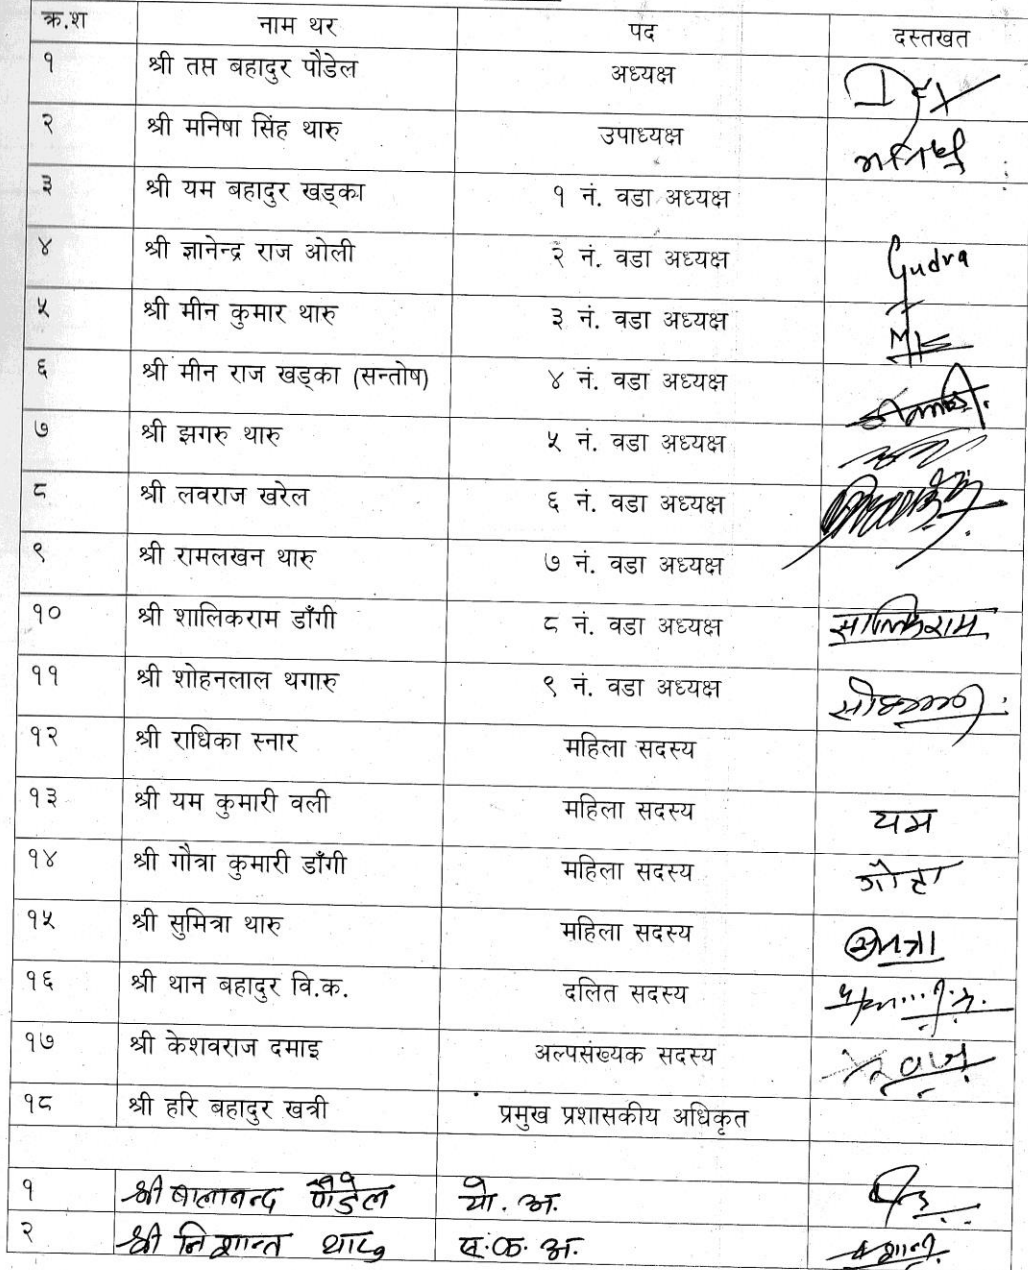 क्र.श नाम थर पद दस्तखत
१ श्री तप्त बहादुर पौडेल अध्यक्ष
२ श्री मनिषा सिंह थारु उपाध्यक्ष
३ श्री यम बहादुर खड्का १ नं. वडा अध्यक्ष
४ श्री ज्ञानेन्द्र राज ओली २ नं. वडा अध्यक्ष
५ श्री मीन कुमार थारु ३ नं. वडा अध्यक्ष
६ श्री मीन राज खड्का (सन्तोष) ४ नं. वडा अध्यक्ष
७ श्री झगरु थारु ५ नं. वडा अध्यक्ष
८ श्री लवराज खरेल ६ नं. वडा अध्यक्ष
९ श्री रामलखन थारु ७ नं. वडा अध्यक्ष
१० श्री शालिकराम डाँगी ८ नं. वडा अध्यक्ष
११ श्री शोहनलाल थगारु ९ नं. वडा अध्यक्ष
१२ श्री राधिका स्नार महिला सदस्य
१३ श्री यम कुमारी वली महिला सदस्य यम
१४ श्री गौत्रा कुमारी डाँगी महिला सदस्य
१५ श्री सुमित्रा थारु महिला सदस्य
१६ श्री थान बहादुर वि.क. दलित सदस्य
१७ श्री केशवराज दमाइ अल्पसंख्यक सदस्य
१८ श्री हरि बहादुर खत्री प्रमुख प्रशासकीय अधिकृत
१ श्री बालानन्द पौडेल यो. अ.
२ श्री निशान्त थारु